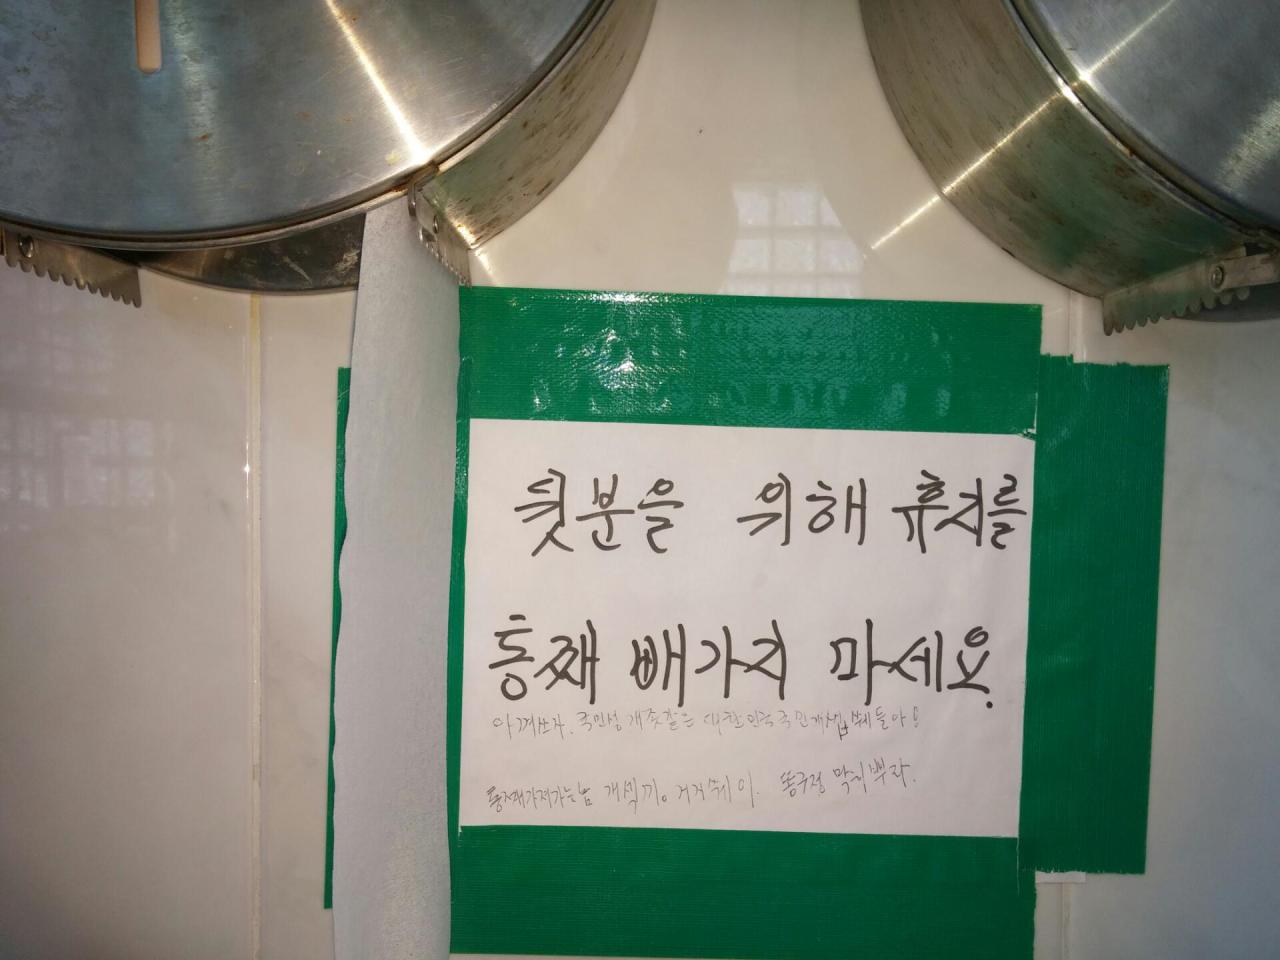 뒷분을 위해 휴지를
통째 빼가지 마세요.
아껴쓰자. 국민성 개좆같은 대한민국 국민개섭쉐들아!
통째가져가는놈 개섹끼. 거지쉐이. 똥구멍 막히뿌라.